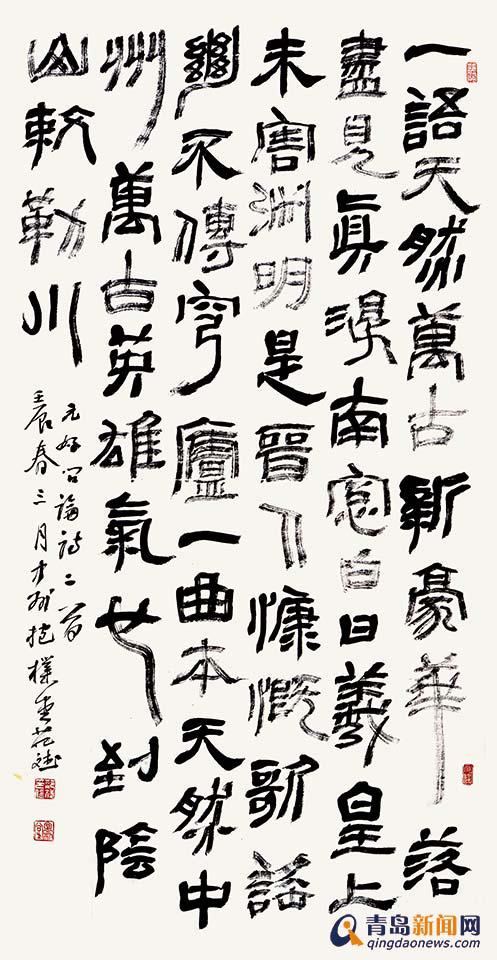 一語天然萬古新豪華落
盡見眞淳南窗白日羲皇上
未害淵明是晉人慷慨歌謠
絕不傳穹廬一曲本天然中
州萬古英雄氣也到陰
山敕勒川
元好问論詩二首
壬辰春三月抱樸
青岛新闻网
qingdaonews.com